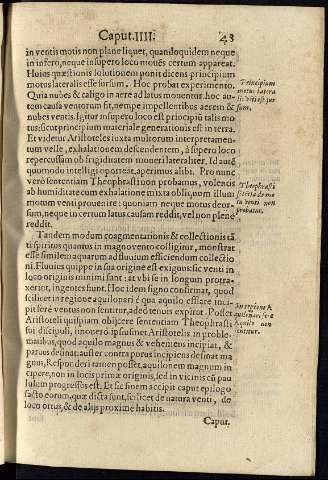 Caput. IIII. 43
in ventis motis non plane liquet, quandoquidem neque
in infero, neque in supero loco mouēs certum appareat.
Huius quæstionis solutionem ponit dicens principium
motus lateralis esse sursum. Hoc probat experimento.
Quia nubes & caligo in aere ad latus mouentur. hoc au-
tem causa ventorum fit, nempe impellentibus aerem &
nubes ventis. Igitur in supero loco est principiū talis mo
tus: sicut principium materiale generationis est in terra.
Et videtur Aristoteles iuxta multorum interpretamen-
tum velle, exhalationem descendentem, à supero loco
repercussam ob frigiditatem moueri lateraliter. Id autē
quomodo intelligi oporteat, aperimus alibi. Pro nunc
verò sententiam Theophrasti non probamus, volentis
ab humiditate cum exhalatione mixta obliquum illum
motum venti prouenire: quoniam neque motus deor-
sum, neque in certum latus causam reddit, vel non plenè
reddit.
Principium
motus latera
lis
sum.
Theophrasti
in venti non
probatur.
Tandem modum coagmentationis & collectionis tā
ti spiritus quantus in magno vento colligitur, monstrat
esse similem aquarum ad fluuium efficiendum collectio
ni. Fluuius quippe in sua origine est exiguus: sic venti in
loco originis minimi sunt: at vbi se in longum protra-
xerint, ingentes sunt. Hoc idem signo confirmat, quod
scilicet in regione aquilonari è qua aquilo essare inci-
pit ferè ventus non sentitur, adeò tenuis expirat. Posset
Aristoteli quispiam obijcere sententiam Theophrasti
sui discipuli, imò verò ipsius fert Aristotelis in proble-
matibus, quod aquilo magnus & vehemens incipiat, &
paruus desinat: auster contra paruus incipiens desinat ma
gnus, Responderi tamen posset, aquilonem magnum in
cipere, non in locis primæ originis, sed in vicinis cū pau
lulum progressus est. Et sic finem accipit caput epilogo
facto eorum, quæ dicta sunt, scilicet de natura venti, de
loco ortus, & de alijs proxime habitis.
In regione
Aquilo non
sentitur.
Caput.